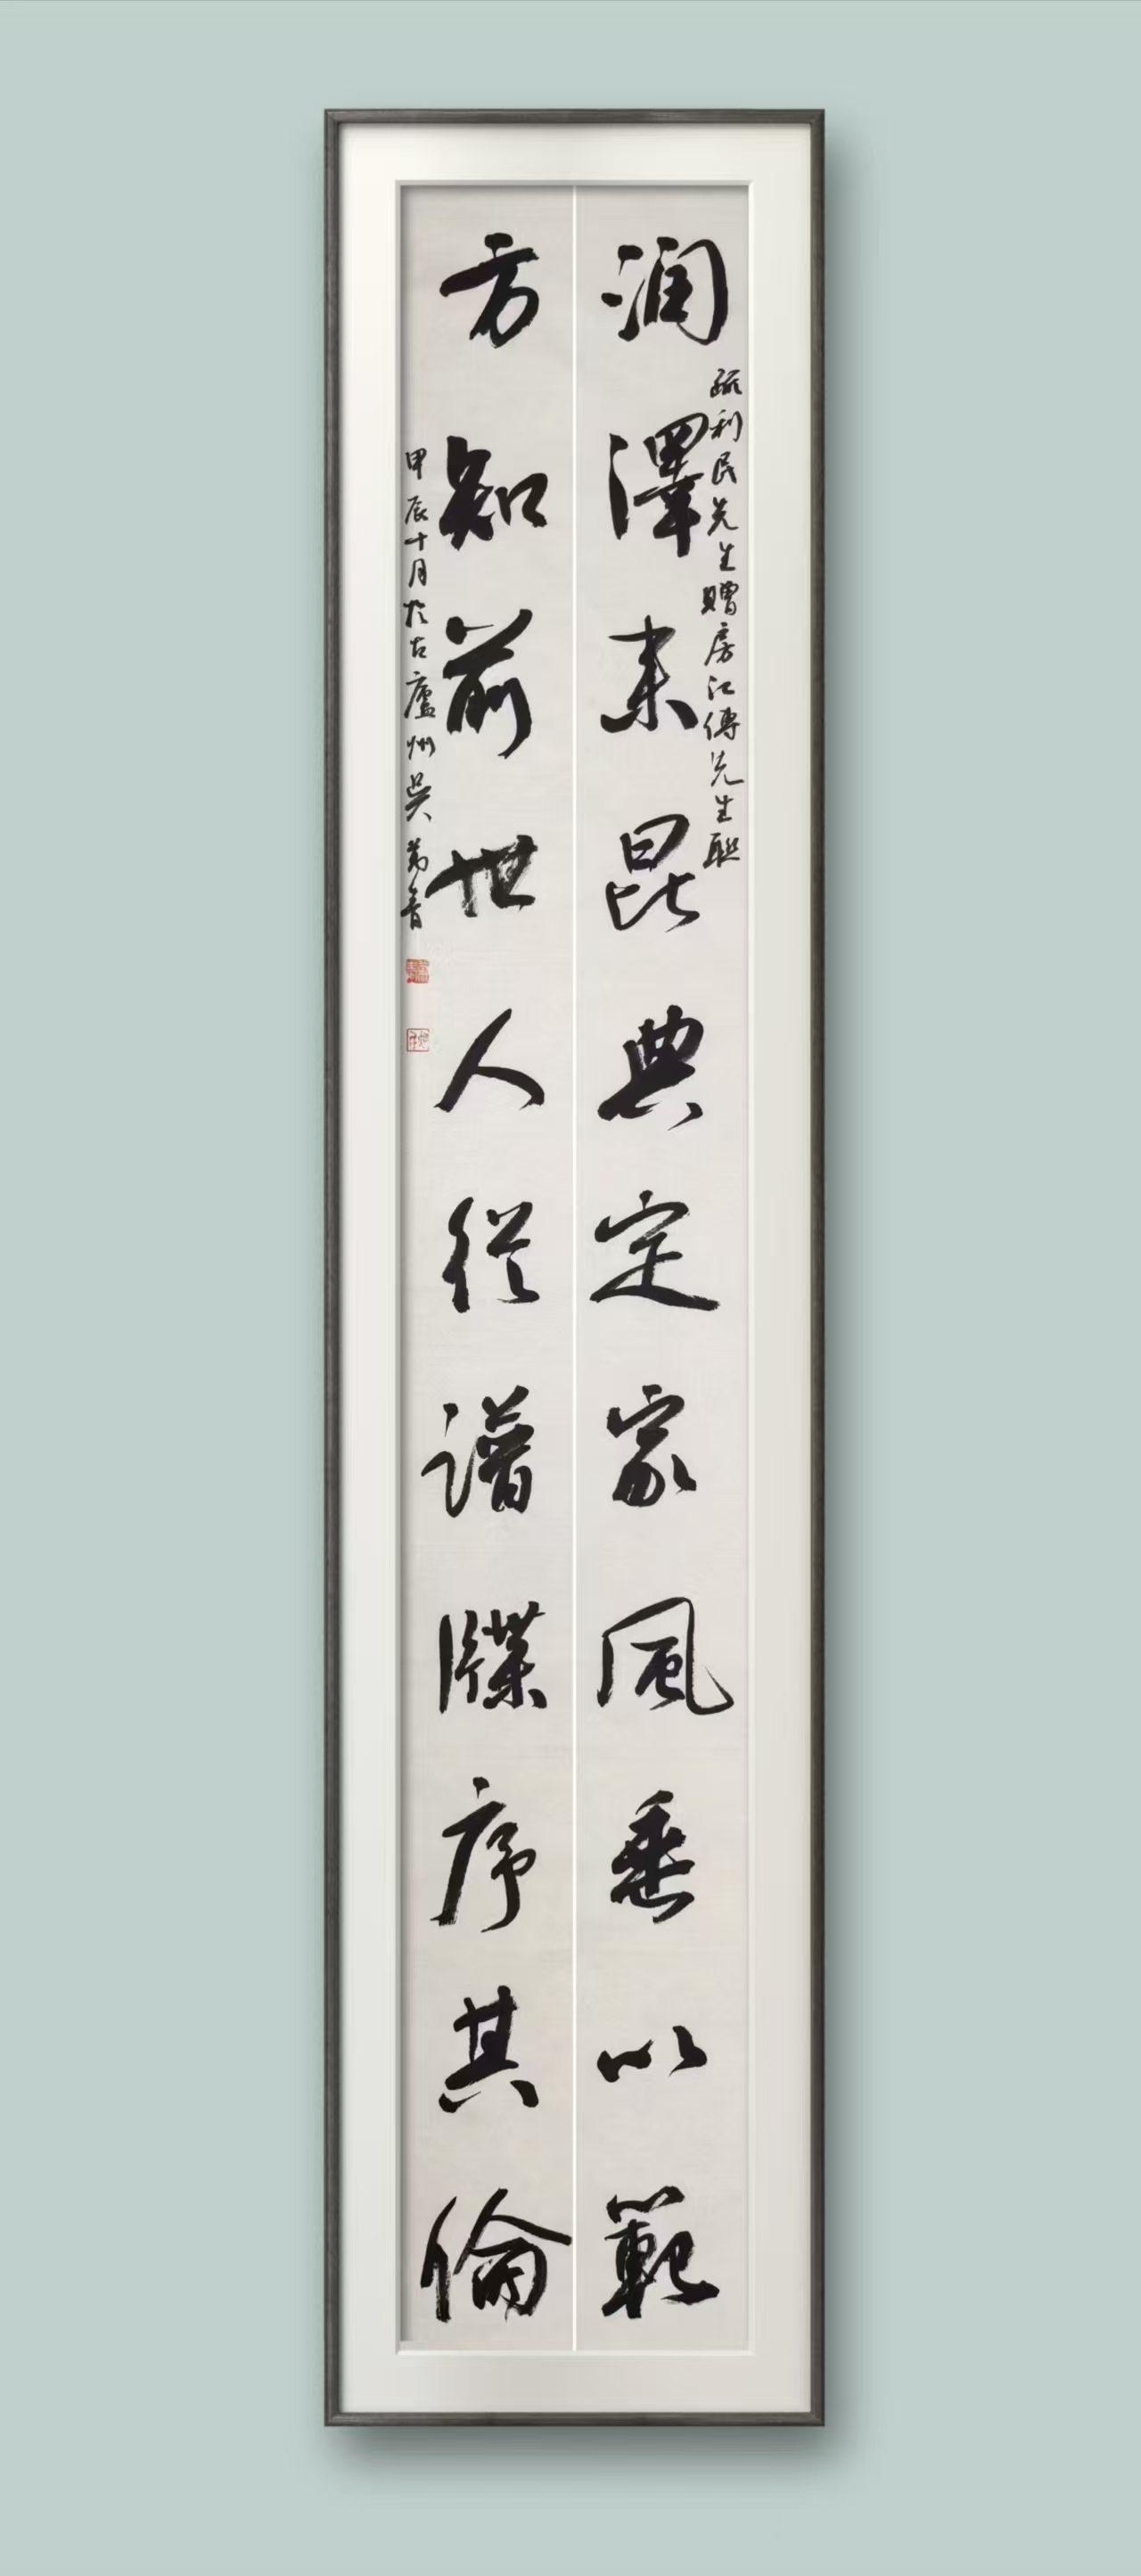 润澤来昆典定家風垂以範
疏利民先生贈房江傳先生聯
方知前世人從譜牒序其倫
甲辰十月於古廬州吳